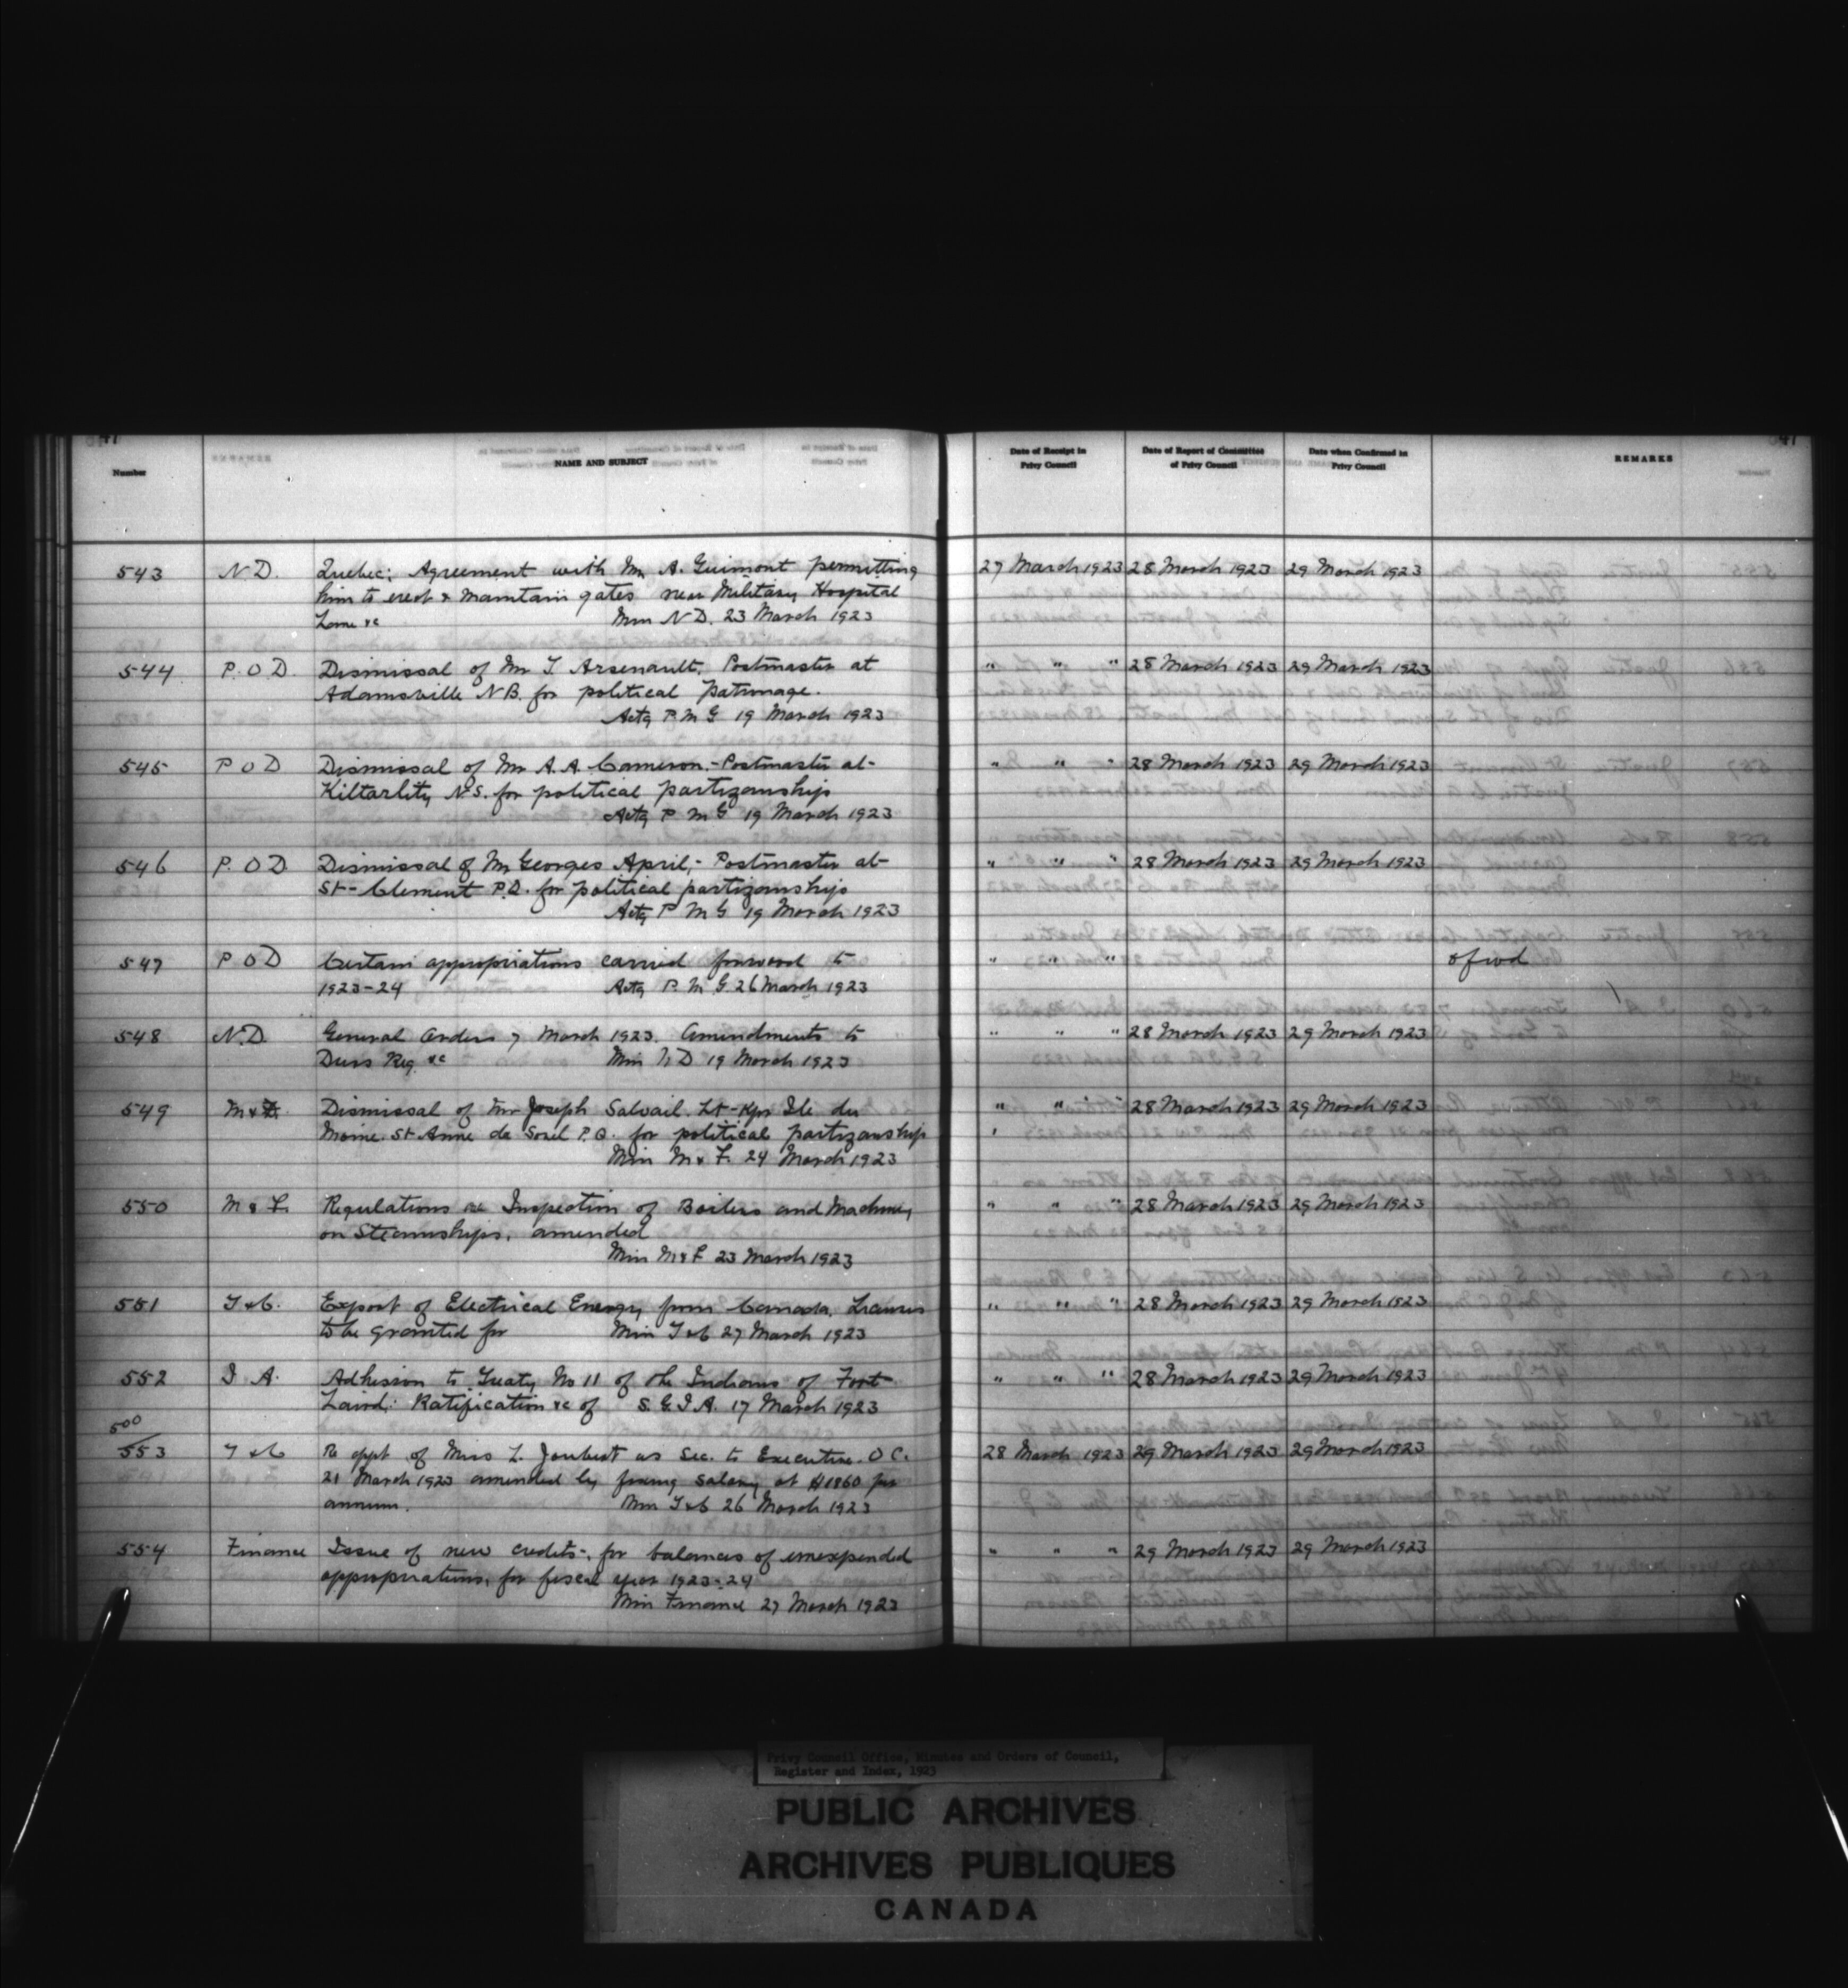 47
Number
NAME AND SUBJECT
Date of Receipt in
Privy Council
Date of Report of Committee
of Privy Council
Date when Confirmed in
Privy Council
REMARKS
47
543 N D. Quebec; Agreement with Mr A. Guimont permitting 27 March 1923 28 March 1923 29 March 1923
him to erect & maintain gates near Military Hospital
&c Min N D. 23 March 1923
544 P. O D. Dismissal of Mr T. Arsenault. Postmaster at " " " 28 March 1923 29 March 1923
Adamsville N B. for political patronage.
Actg P M G 19 March 1923
545 P O D Dismissal of Mr A. A. Cameron.- Postmaster at " " " 28 March 1923 29 March 1923
Kiltarlity N S. for political partizanship
Actg P M G 19 March 1923
546 P. O D. Dismissal of Mr Georges April,- Postmaster at " " " 28 March 1923 29 March 1923
St-Clement P.Q. for political partizanship
Actg P M G 19 March 1923
547 P O D Certain appropriations carried forward to " " "
1923-24 Actg P. M G 26 March 1923
548 N. D. General Orders 7 March 1923. Amendments to " " " 28 March 1923 29 March 1923
Reg &c Min N D 19 March 1923
549 M & F. Dismissal of Mr Joseph Salvail. Lt-Kpr Ile du " " " 28 March 1923 29 March 1923
Moine. St Anne de Sorel P.Q. for political partizanship
Min M & F. 24 March 1923
550 M & F. Regulations re Inspection of Boilers and Machinery " " " 28 March 1923 29 March 1923
on Steamships, amended
Min M & F 23 March 1923
551 T & C. Export of Electrical Energy from Canada, Licenses " " " 28 March 1923 29 March 1923
to be granted for Min T & C 27 March 1923
552 I A. Adhesion to Treaty No 11 of the Indians of Fort " " " 28 March 1923 29 March 1923
Laird: Ratification &c of S. G I A. 17 March 1923
500
553 T & C Re appt of Miss L. Joubert as Sec. to Executive. O C. 28 March 1923 29 March 1923 29 March 1923
21 March 1923 amended by fixing salary at $1860 per
annum. Min T & C 26 March 1923
554 Finance Issue of new credits-, for balances of unexpended " " " 29 March 1923 29 March 1923
appropriations, for fiscal year 1923-24
Min Finance 27 March 1923
Privy Council Office, Minutes and Orders of Council,
Register and Index, 1923
PUBLIC ARCHIVES
ARCHIVES PUBLIQUES
CANADA